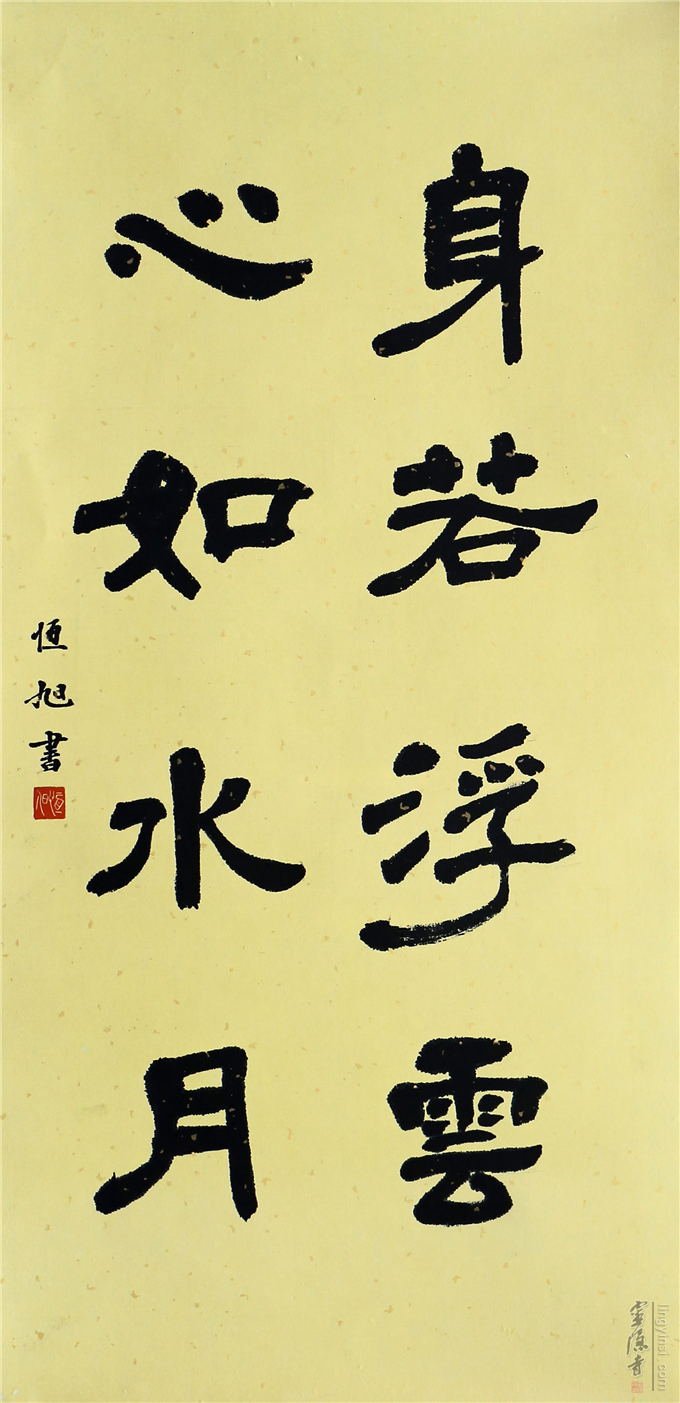 身若浮雲
心如水月
恒旭書
靈隱寺
lingyinsi.com